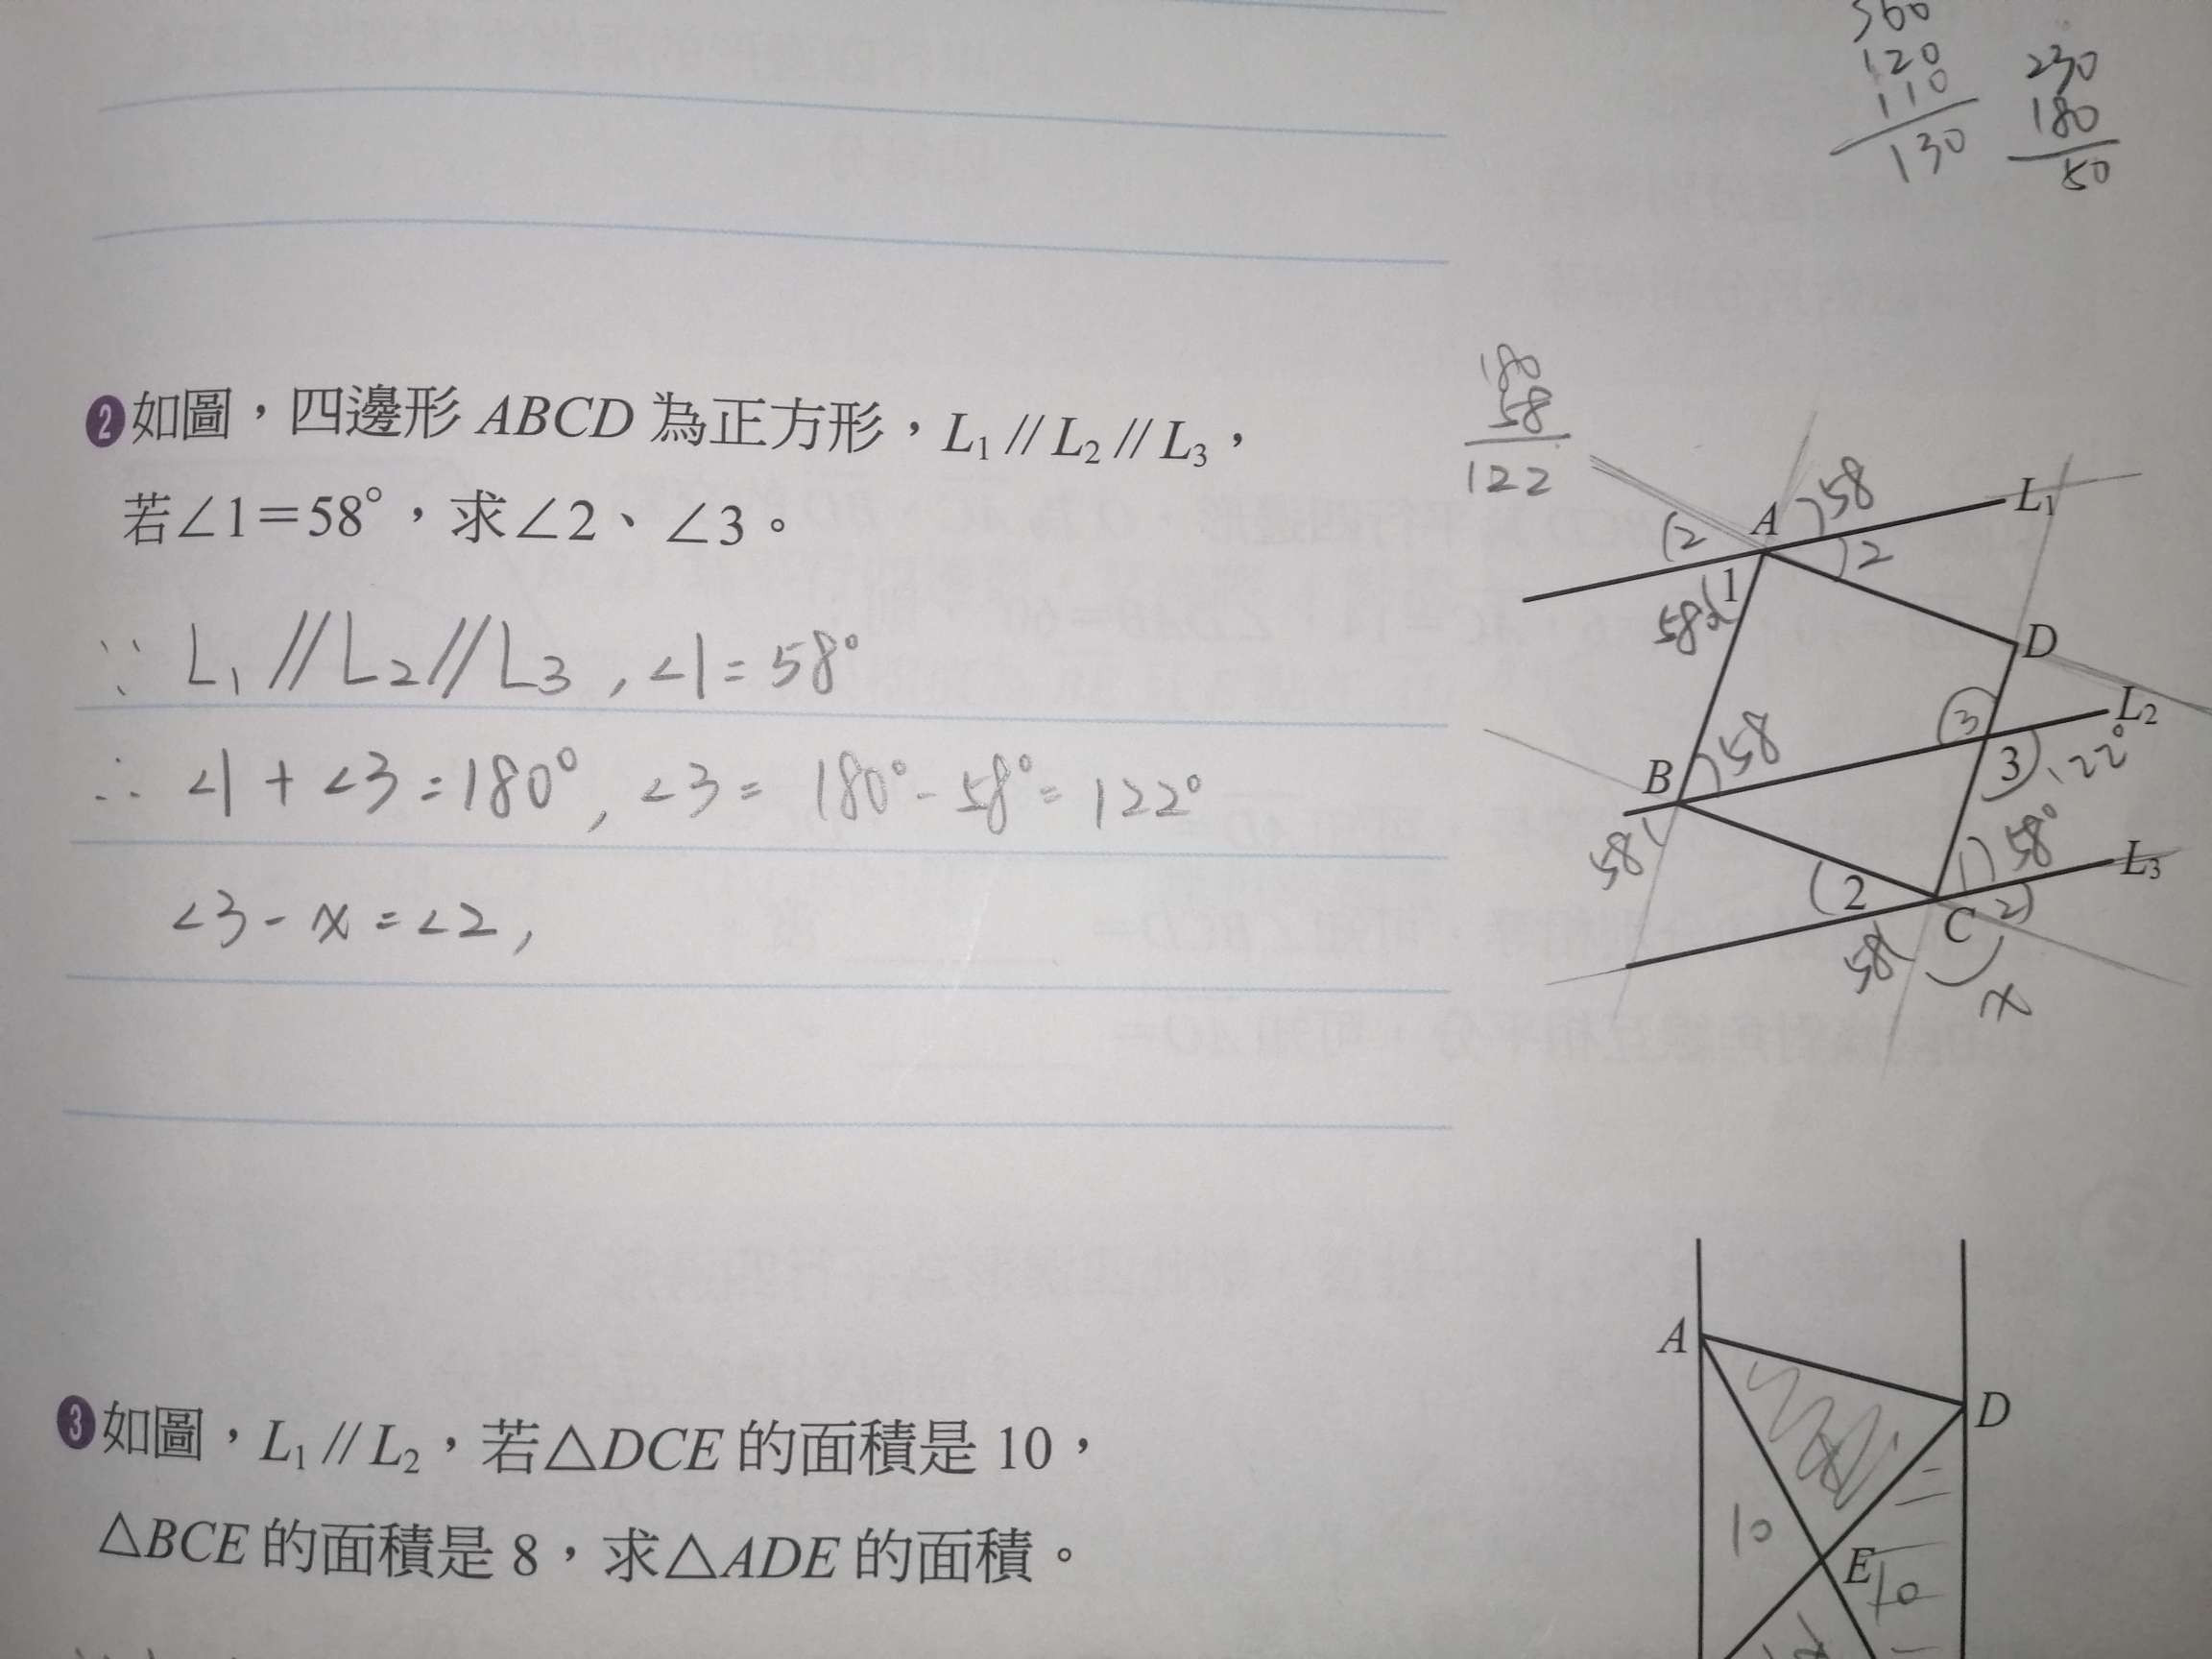 360
120
110
130
230
180
50
❷如圖，四邊形 ABCD 為正方形，L₁ // L₂ // L₃，
若∠1＝58°，求∠2、∠3。
∵ L₁ // L₂ // L₃ , ∠1 = 58°
∴ ∠1 + ∠3 = 180° , ∠3 = 180° - 58° = 122°
∠3 - x = ∠2 ,
180
58
122
A
58
L₁
2
2
1
58
D
3
L₂
B
58
3
122°
58
1
58°
L₃
2
C
2
58
x
❸如圖，L₁ // L₂，若△DCE 的面積是 10，
△BCE 的面積是 8，求△ADE 的面積。
A
D
10
E
10